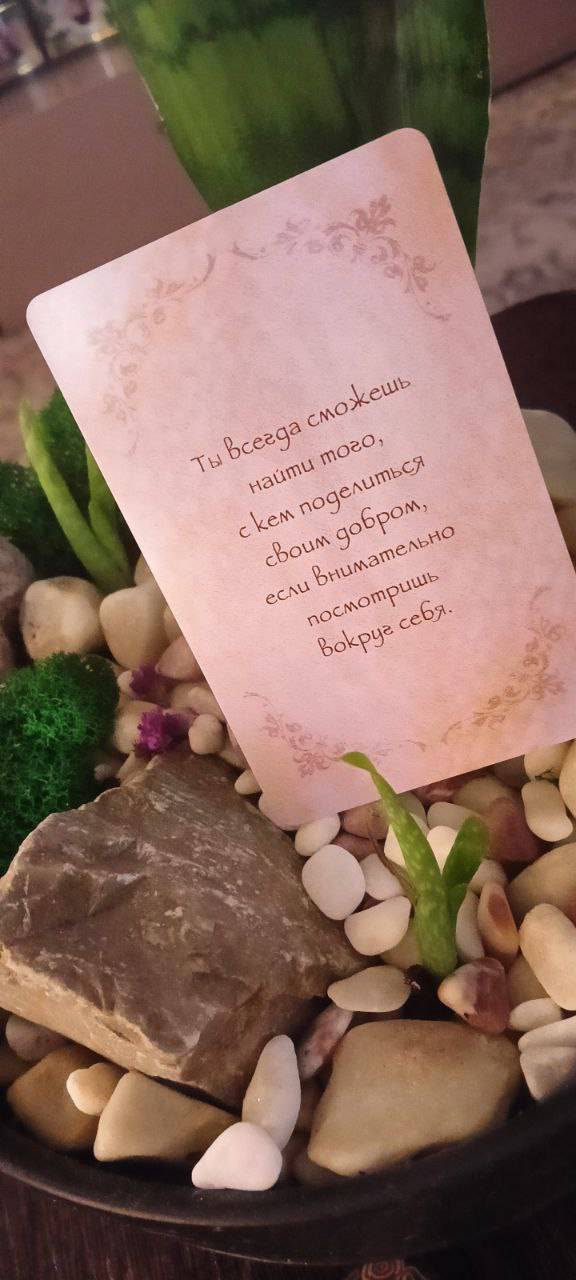 Ты всегда сможешь
найти того,
с кем поделиться
своим добром,
если внимательно
посмотришь
вокруг себя.